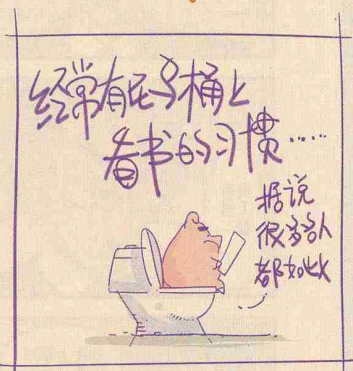 经常有在马桶上
看书的习惯……
据说
很多人
都如此